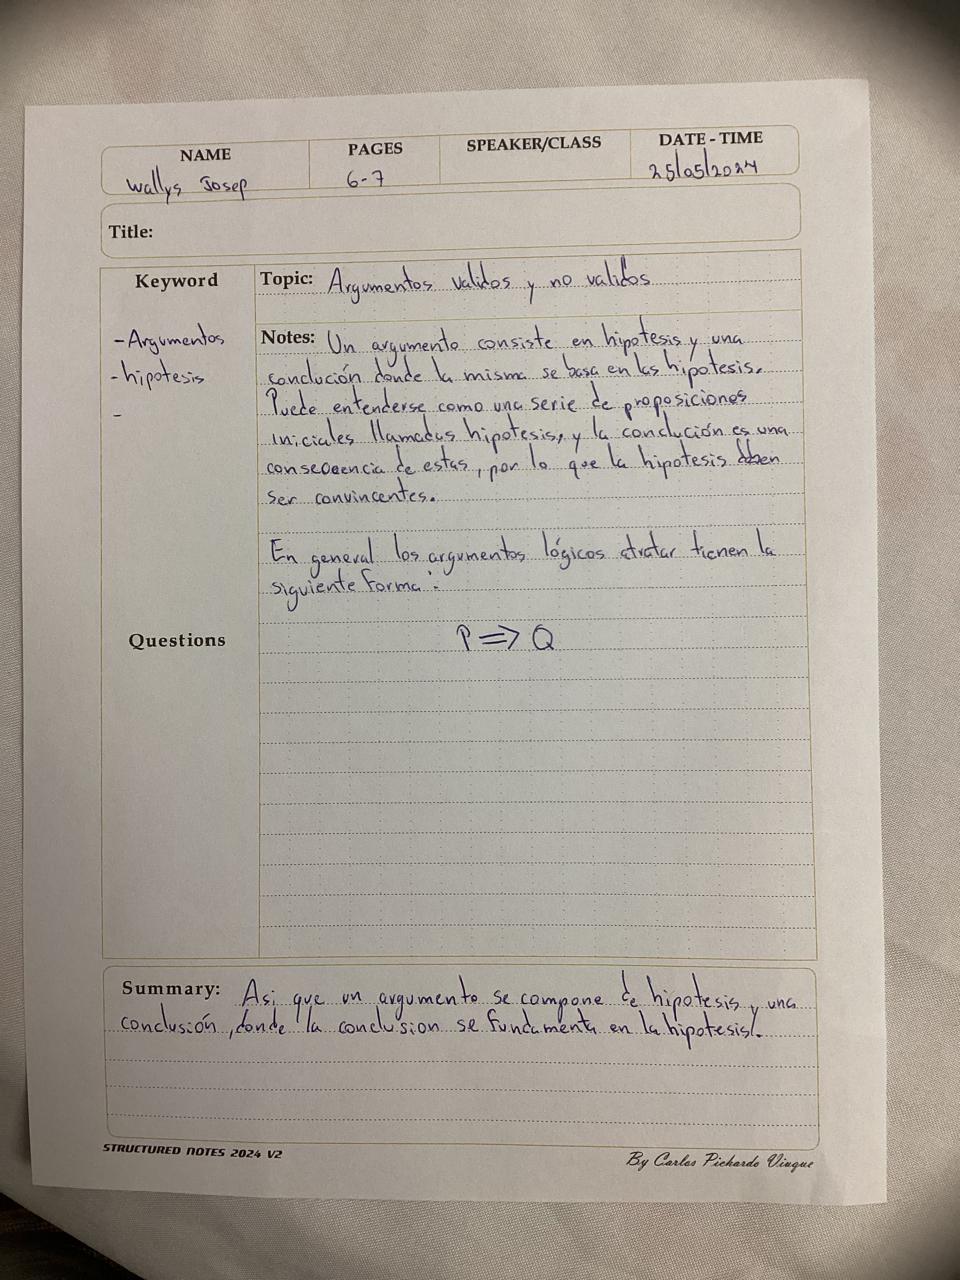 NAME
PAGES
SPEAKER/CLASS
DATE - TIME
Wallys Josep
6-7
25/05/2024
Title:
Keyword
- Argumentos
- hipotesis
-
Topic: Argumentos validos y no validos
Notes: Un argumento consiste en hipotesis y una
conclución donde la misma se basa en las hipotesis.
Puede entenderse como una serie de proposiciones
iniciales llamadas hipotesis, y la conclución es una
consecuencia de estas, por lo que la hipotesis deben
ser convincentes.
En general los argumentos lógicos tratar tienen la
siguiente forma:
P ⇒ Q
Questions
Summary: Asi que un argumento se compone de hipotesis y una
conclusión, donde la conclusion se fundamenta en la hipotesis.
STRUCTURED NOTES 2024 V2
By Carlos Pichardo Viuque